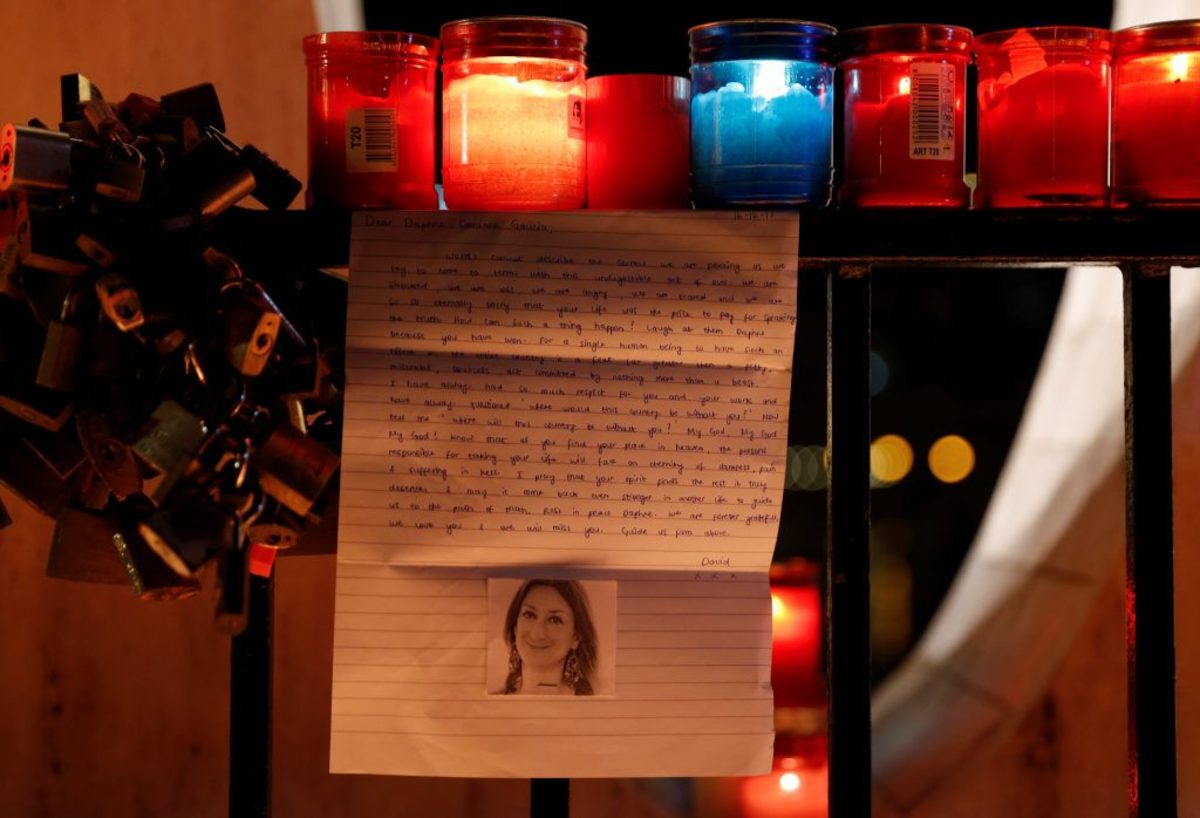 T20
ART T20
Dear Daphne Caruana Galizia,
words cannot describe the sorrow we are feeling as we
try to come to terms with this undigestible act of evil. We are
shocked, we are lost, we are angry, we are scared and we are
so so eternally sorry that your life was the price to pay for speaking
the truth. How can such a thing happen? Laugh at them Daphne
because you have won. For a single human being to have such an
effect on the entire country is a feat far greater than a petty,
miserable, senseless act committed by nothing more than a beast.
I have always had so much respect for you and your work and
have always questioned 'where would this country be without you?' Now
tell me 'where will this country be without you?' My God, My God
My God! Know that as you find your place in heaven, the
responsible for taking your life will face an eternity of darkness, pain
& suffering in hell. I pray that your spirit finds the rest it truly
deserves & may it come back even stronger in another life to guide
us to the path of truth. Rest in peace Daphne. We are forever grateful,
we love you & we will miss you. Guide us from above.
David
x x x